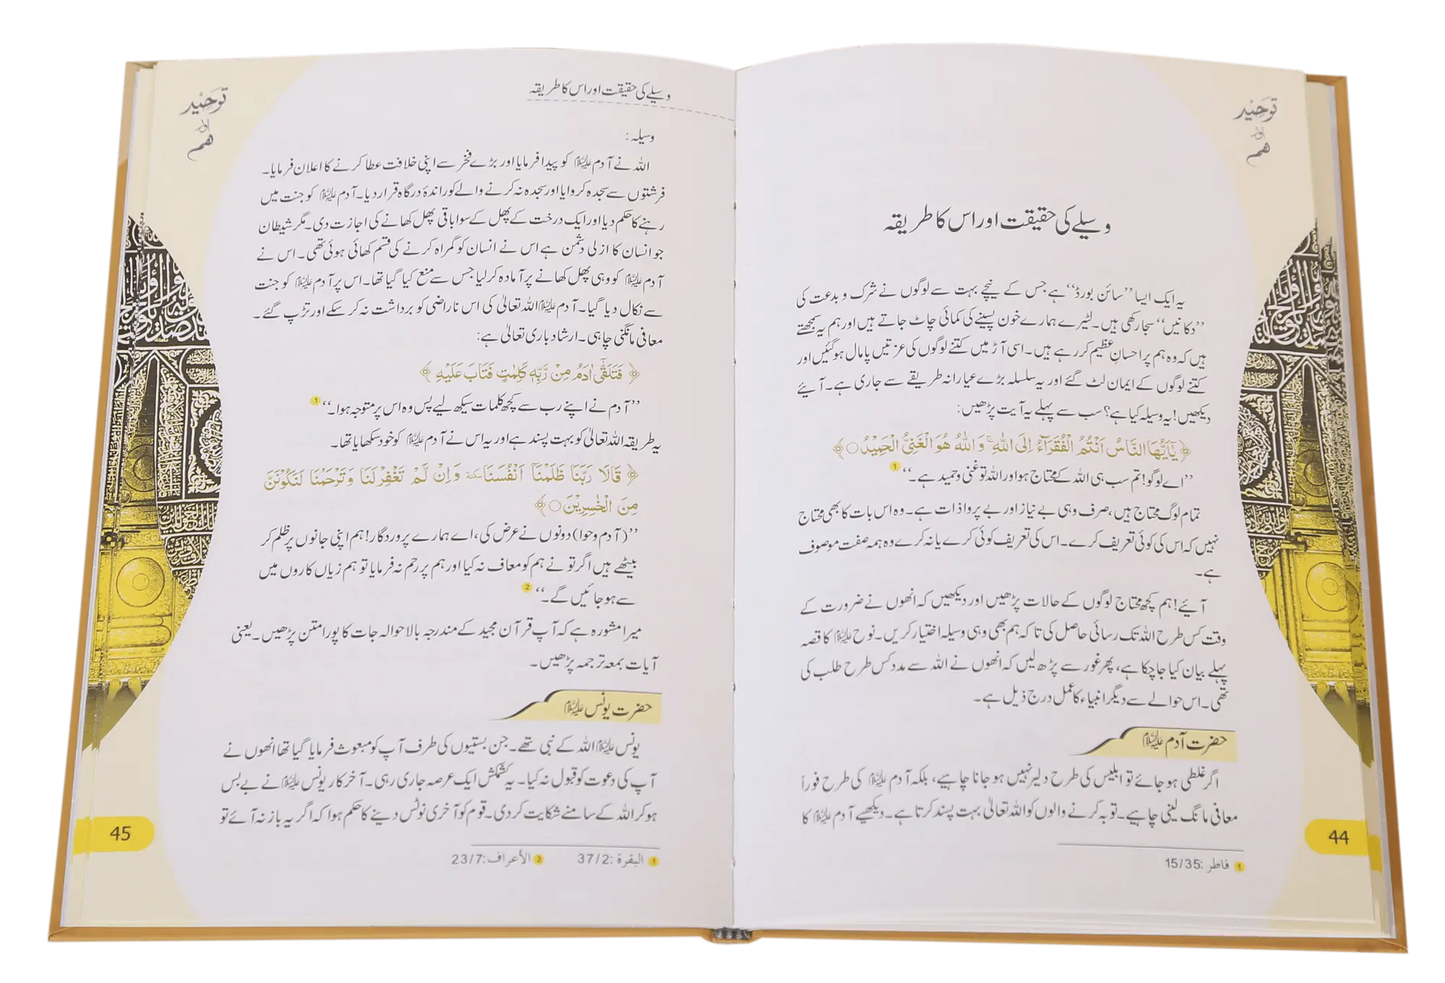 توحید
اور
ھم
وسیلے کی حقیقت اور اس کا طریقہ
یہ ایک ایسا ’’سائن بورڈ‘‘ ہے جس کے نیچے بہت سے لوگوں نے شرک و بدعت کی
’’دکانیں‘‘ سجا رکھی ہیں۔ لٹیرے ہمارے خون پسینے کی کمائی چاٹ جاتے ہیں اور ہم یہ سمجھتے
ہیں کہ وہ ہم پر احسانِ عظیم کر رہے ہیں۔ اسی آڑ میں کتنے لوگوں کی عزتیں پامال ہو گئیں اور
کتنے لوگوں کے ایمان لٹ گئے اور یہ سلسلہ بڑے عیارانہ طریقے سے جاری ہے۔ آیئے
دیکھیں! یہ وسیلہ کیا ہے؟ سب سے پہلے یہ آیت پڑھیں:
﴿ يٰٓاَيُّهَا النَّاسُ اَنْتُمُ الْفُقَرَآءُ اِلَى اللّٰهِ ۚ وَ اللّٰهُ هُوَ الْغَنِيُّ الْحَمِيْدُ ○﴾
’’اے لوگو! تم سب ہی اللہ کے محتاج ہو اور اللہ تو غنی و حمید ہے۔‘‘ 1
تمام لوگ محتاج ہیں، صرف وہی بے نیاز اور بے پروا ذات ہے۔ وہ اس بات کا بھی محتاج
نہیں کہ اس کی کوئی تعریف کرے۔ اس کی تعریف کوئی کرے یا نہ کرے وہ ہمہ صفت موصوف
ہے۔
آیئے! ہم کچھ محتاج لوگوں کے حالات پڑھیں اور دیکھیں کہ انھوں نے ضرورت کے
وقت کس طرح اللہ تک رسائی حاصل کی تاکہ ہم بھی وہی وسیلہ اختیار کریں۔ نوح علیہ السلام کا قصہ
پہلے بیان کیا جا چکا ہے، پھر غور سے پڑھ لیں کہ انھوں نے اللہ سے مدد کس طرح طلب کی
تھی۔ اس حوالے سے دیگر انبیاء کا عمل درج ذیل ہے۔
حضرت آدم علیہ السلام
اگر غلطی ہو جائے تو ابلیس کی طرح دلیر نہیں ہو جانا چاہیے، بلکہ آدم علیہ السلام کی طرح فوراً
معافی مانگ لینی چاہیے۔ توبہ کرنے والوں کو اللہ تعالیٰ بہت پسند کرتا ہے۔ دیکھیے آدم علیہ السلام کا
1 فاطر :15/35
44
توحید
اور
ھم
وسیلے کی حقیقت اور اس کا طریقہ
وسیلہ:
اللہ نے آدم علیہ السلام کو پیدا فرمایا اور بڑے فخر سے اپنی خلافت عطا کرنے کا اعلان فرمایا۔
فرشتوں سے سجدہ کروایا اور سجدہ نہ کرنے والے کو راندۂ درگاہ قرار دیا۔ آدم علیہ السلام کو جنت میں
رہنے کا حکم دیا اور ایک درخت کے پھل کے سوا باقی پھل کھانے کی اجازت دی۔ مگر شیطان
جو انسان کا ازلی دشمن ہے اس نے انسان کو گمراہ کرنے کی قسم کھائی ہوئی تھی۔ اس نے
آدم علیہ السلام کو وہی پھل کھانے پر آمادہ کر لیا جس سے منع کیا گیا تھا۔ اس پر آدم علیہ السلام کو جنت
سے نکال دیا گیا۔ آدم علیہ السلام اللہ تعالیٰ کی اس ناراضی کو برداشت نہ کر سکے اور تڑپ گئے۔
معافی مانگنی چاہی۔ ارشاد باری تعالیٰ ہے:
﴿ فَتَلَقّٰٓى اٰدَمُ مِنْ رَّبِّهٖ كَلِمٰتٍ فَتَابَ عَلَيْهِ ﴾
’’آدم نے اپنے رب سے کچھ کلمات سیکھ لیے پس وہ اس پر متوجہ ہوا۔‘‘ 1
یہ طریقہ اللہ تعالیٰ کو بہت پسند ہے اور یہ اس نے آدم علیہ السلام کو خود سکھایا تھا۔
﴿ قَالَا رَبَّنَا ظَلَمْنَاۤ اَنْفُسَنَا ٚ وَ اِنْ لَّمْ تَغْفِرْ لَنَا وَ تَرْحَمْنَا لَنَكُوْنَنَّ
مِنَ الْخٰسِرِيْنَ○﴾
’’(آدم و حوا) دونوں نے عرض کی، اے ہمارے پروردگار! ہم اپنی جانوں پر ظلم کر
بیٹھے ہیں اگر تو نے ہم کو معاف نہ کیا اور ہم پر رحم نہ فرمایا تو ہم زیاں کاروں میں
سے ہو جائیں گے۔‘‘ 2
میرا مشورہ ہے کہ آپ قرآن مجید کے مندرجہ بالا حوالہ جات کا پورا متن پڑھیں۔ یعنی
آیات بمعہ ترجمہ پڑھیں۔
حضرت یونس علیہ السلام
یونس علیہ السلام اللہ کے نبی تھے۔ جن بستیوں کی طرف آپ کو مبعوث فرمایا گیا تھا انھوں نے
آپ کی دعوت کو قبول نہ کیا۔ یہ کشمکش ایک عرصہ جاری رہی۔ آخر کار یونس علیہ السلام نے بے بس
ہو کر اللہ کے سامنے شکایت کر دی۔ قوم کو آخری نوٹس دینے کا حکم ہوا کہ اگر یہ باز نہ آئے تو
1 البقرة :37/2 2 الأعراف :23/7
45